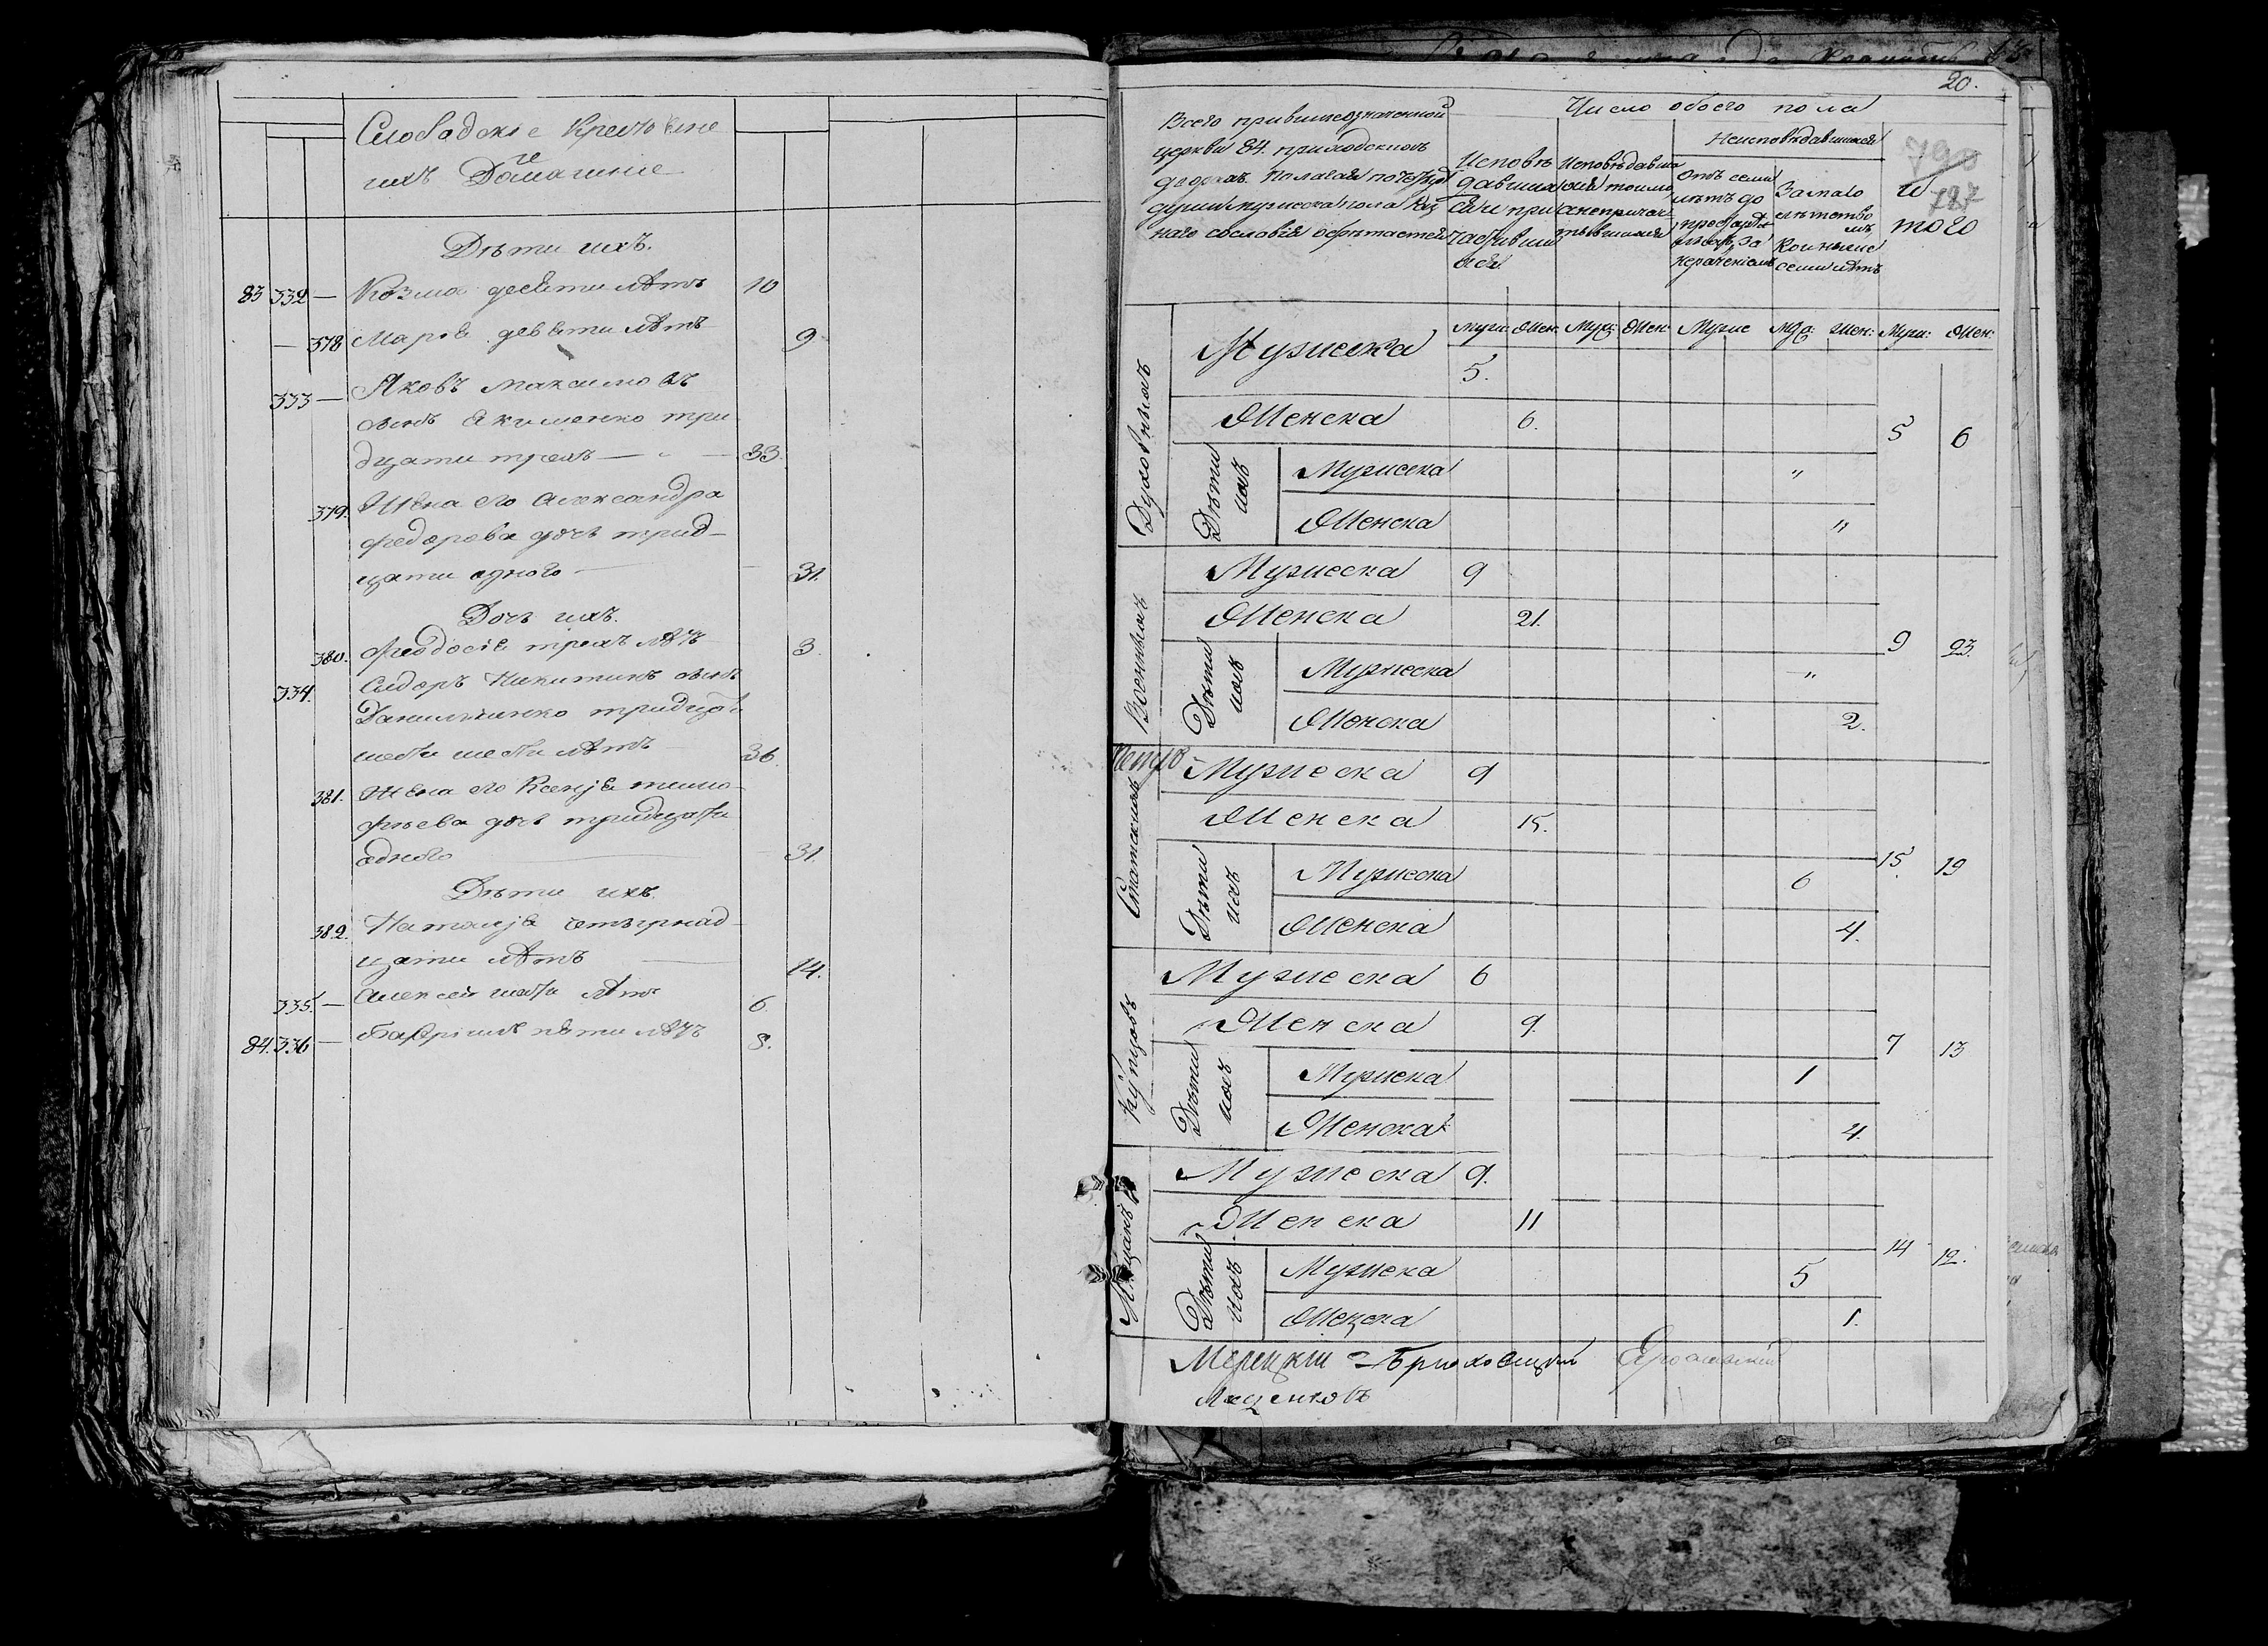 Слободские Крестьяне
ихъ Домашние
Дѣти ихъ.
83 332 — Козма десяти лѣтъ 10
378 Марѳа девяти лѣтъ 9
333 — Яковъ Максимовъ
сынъ Акименко три
дцати трехъ — 33.
379. Жена его Александра
Федорова дочь трид-
цати одного — 31.
Дочь ихъ.
380. Феодосіа трехъ лѣтъ 3.
334. Сидоръ Никитинъ сынъ
тридцати
шести лѣтъ 36.
381. Жена его Ксенія тимо-
фѣева дочь тридцати
одного 31.
Дѣти ихъ.
382. Наталія четырнад-
цати лѣтъ 14.
335. — Алексей шести лѣтъ 6.
84. 336 — Гавріилъ пяти лѣтъ 5.
20.
Всего при вышеозначенной
церкви 84. приходскихъ
дворахъ.
души мужеска пола
наго сословія
Число обоего пола
Исповѣ
давши
ся и при
частивши
ся
Исповѣдавши
ся токмо
а не причас
тившихся
Неисповѣдавшихся
Отъ семи
лѣтъ до
за
нераченіемъ
За мало
лѣтство
мъ
Кои ниже
семи лѣтъ
790
787
и
того
Муж: Жен: Муж: Жен: Муже Муж: Жен: Муж: Жен:
Духовныхъ
Мужеска 5.
Женска 6. 5 6
Дѣти ихъ
Мужеска "
Женска "
Военныхъ
Мужеска 9
Женска 21. 9 23.
Дѣти ихъ
Мужеска "
Женска 2.
Статскихъ
Мужеска 9
Женска 15. 15. 19
Дѣти ихъ
Мужеска 6
Женска 4.
Купцовъ
Мужеска 6
Женска 9. 7 13
Дѣти ихъ
Мужеска 1
Женска 4.
Мѣщанъ
Мужеска 9.
Женска 11 14 12.
Дѣти ихъ
Мужеска 5
Женска 1.